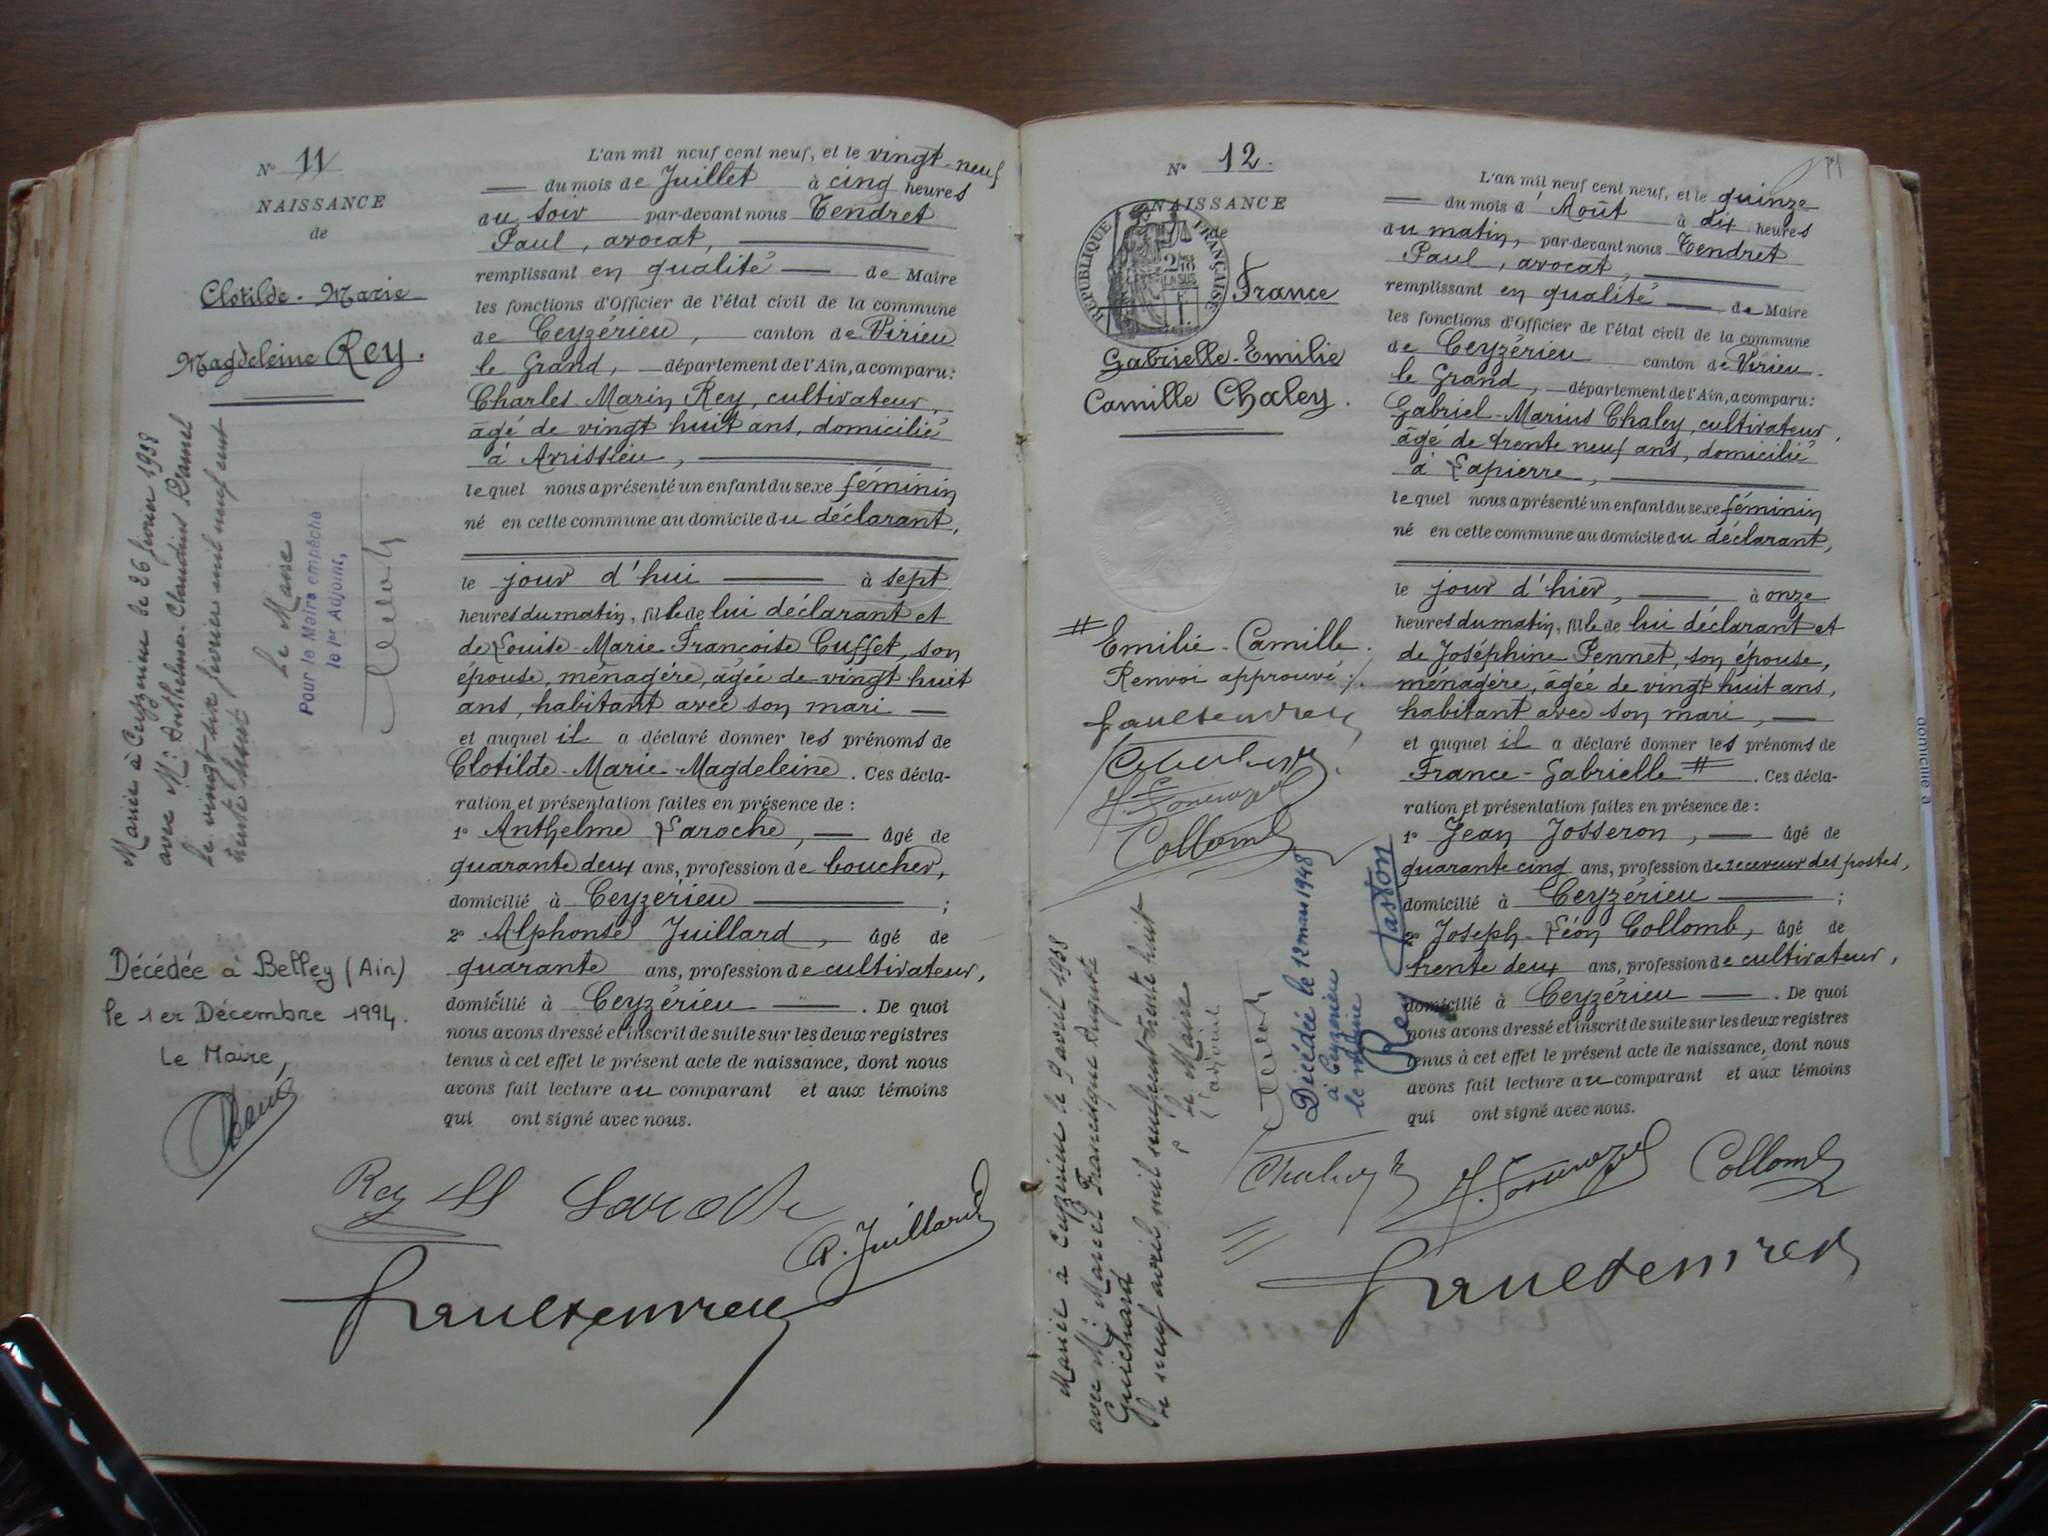 N° 11
NAISSANCE
de
Clotilde-Marie
Magdeleine Rey.
Mariée à Ceyzérieu le 26 février 1938
avec Mr: Anthelme-Claudius Ramel
Le vingt-six février mil neuf cent
trente huit
Le Maire
Pour le Maire empêché
le 1er Adjoint,
Décédée à Belley (Ain)
le 1er Décembre 1994.
Le Maire,
L'an mil neuf cent neuf, et le vingt-neuf
du mois de Juillet à cinq heures
du soir par-devant nous Tendret
Paul, avocat,
remplissant en qualité de Maire
les fonctions d'Officier de l'état civil de la commune
de Ceyzérieu, canton de Virieu
le Grand, département de l'Ain, a comparu:
Charles-Marin Rey, cultivateur,
âgé de vingt huit ans, domicilié
à Avrissieu,
lequel nous a présenté un enfant du sexe féminin
né en cette commune au domicile du déclarant,
le jour d'hui à sept
heures du matin, fille de lui déclarant et
de Louise-Marie Françoise Cuffet, son
épouse, ménagère, âgée de vingt huit
ans, habitant avec son mari
et auquel il a déclaré donner les prénoms de
Clotilde-Marie-Magdeleine. Ces décla-
ration et présentation faites en présence de:
1° Anthelme Laroche, âgé de
quarante deux ans, profession de boucher,
domicilié à Ceyzérieu ;
2° Alphonse Juillard, âgé de
quarante ans, profession de cultivateur,
domicilié à Ceyzérieu. De quoi
nous avons dressé et inscrit de suite sur les deux registres
tenus à cet effet le présent acte de naissance, dont nous
avons fait lecture au comparant et aux témoins
qui ont signé avec nous.
Rey Laroche
A. Juillard
N° 12.
NAISSANCE
de
RÉPUBLIQUE FRANÇAISE
France
Gabrielle-Emilie
Camille Chaley.
# Emilie-Camille.
Renvoi approuvé ./.
Collomb
Mariée à Ceyzérieu le 9 avril 1938
avec Mr: Marcel Francisque Auguste
Guichard
Le neuf avril mil neuf cent trente huit
Le Maire
L'adjoint
Décédée le 12 mars 1948
à Ceyzérieu
le maire
Rey Gaston
L'an mil neuf cent neuf, et le quinze
du mois d'Août à dix heures
du matin, par-devant nous Tendret
Paul, avocat,
remplissant en qualité de Maire
les fonctions d'Officier de l'état civil de la commune
de Ceyzérieu canton de Virieu-
le Grand, département de l'Ain, a comparu:
Gabriel-Marius Chaley, cultivateur,
âgé de trente neuf ans, domicilié
à Lapierre,
lequel nous a présenté un enfant du sexe féminin
né en cette commune au domicile du déclarant,
le jour d'hier, à onze
heures du matin, fille de lui déclarant et
de Joséphine Pennet, son épouse,
ménagère, âgée de vingt huit ans,
habitant avec son mari,
et auquel il a déclaré donner les prénoms de
France-Gabrielle #. Ces décla-
ration et présentation faites en présence de:
1° Jean Josseron, âgé de
quarante cinq ans, profession de receveur des postes,
domicilié à Ceyzérieu ;
2° Joseph-Léon Collomb, âgé de
trente deux ans, profession de cultivateur,
domicilié à Ceyzérieu. De quoi
nous avons dressé et inscrit de suite sur les deux registres
tenus à cet effet le présent acte de naissance, dont nous
avons fait lecture au comparant et aux témoins
qui ont signé avec nous.
Chaley Collomb
domicilié à